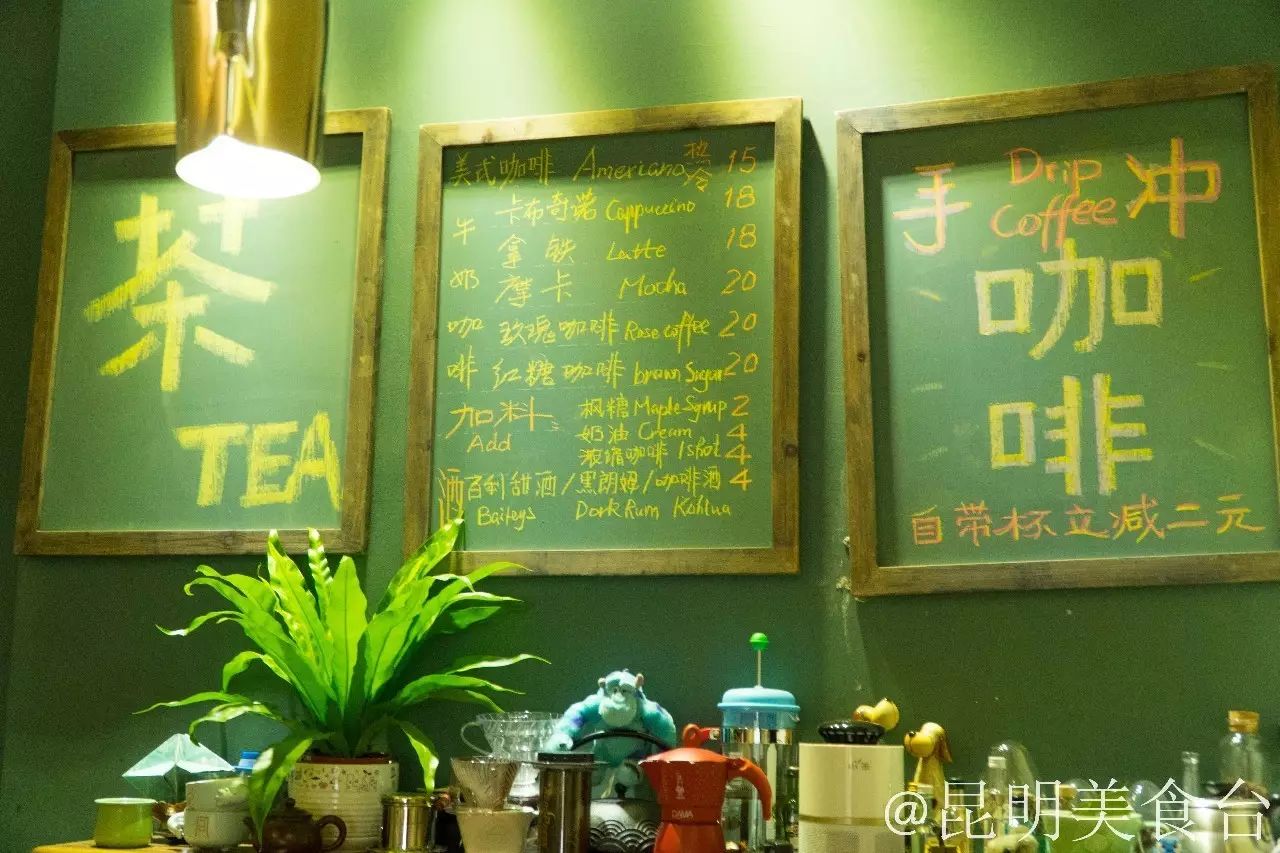 茶
TEA
美式咖啡 Americano 热冷 15
牛奶咖啡
卡布奇诺 Cappuccino 18
拿铁 Latte 18
摩卡 Mocha 20
玫瑰咖啡 Rose Coffee 20
红糖咖啡 brown Sugar 20
加料 Add
枫糖 Maple Syrup 2
奶油 Cream 4
浓缩咖啡 1 shot 4
酒 百利甜酒/黑朗姆/咖啡酒 4
Baileys Dark Rum Kahlua
手 Drip Coffee 冲
咖
啡
自带杯立减二元
@昆明美食台